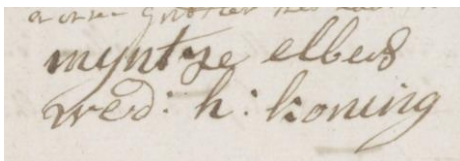 myntye elbers
wed: h: koning